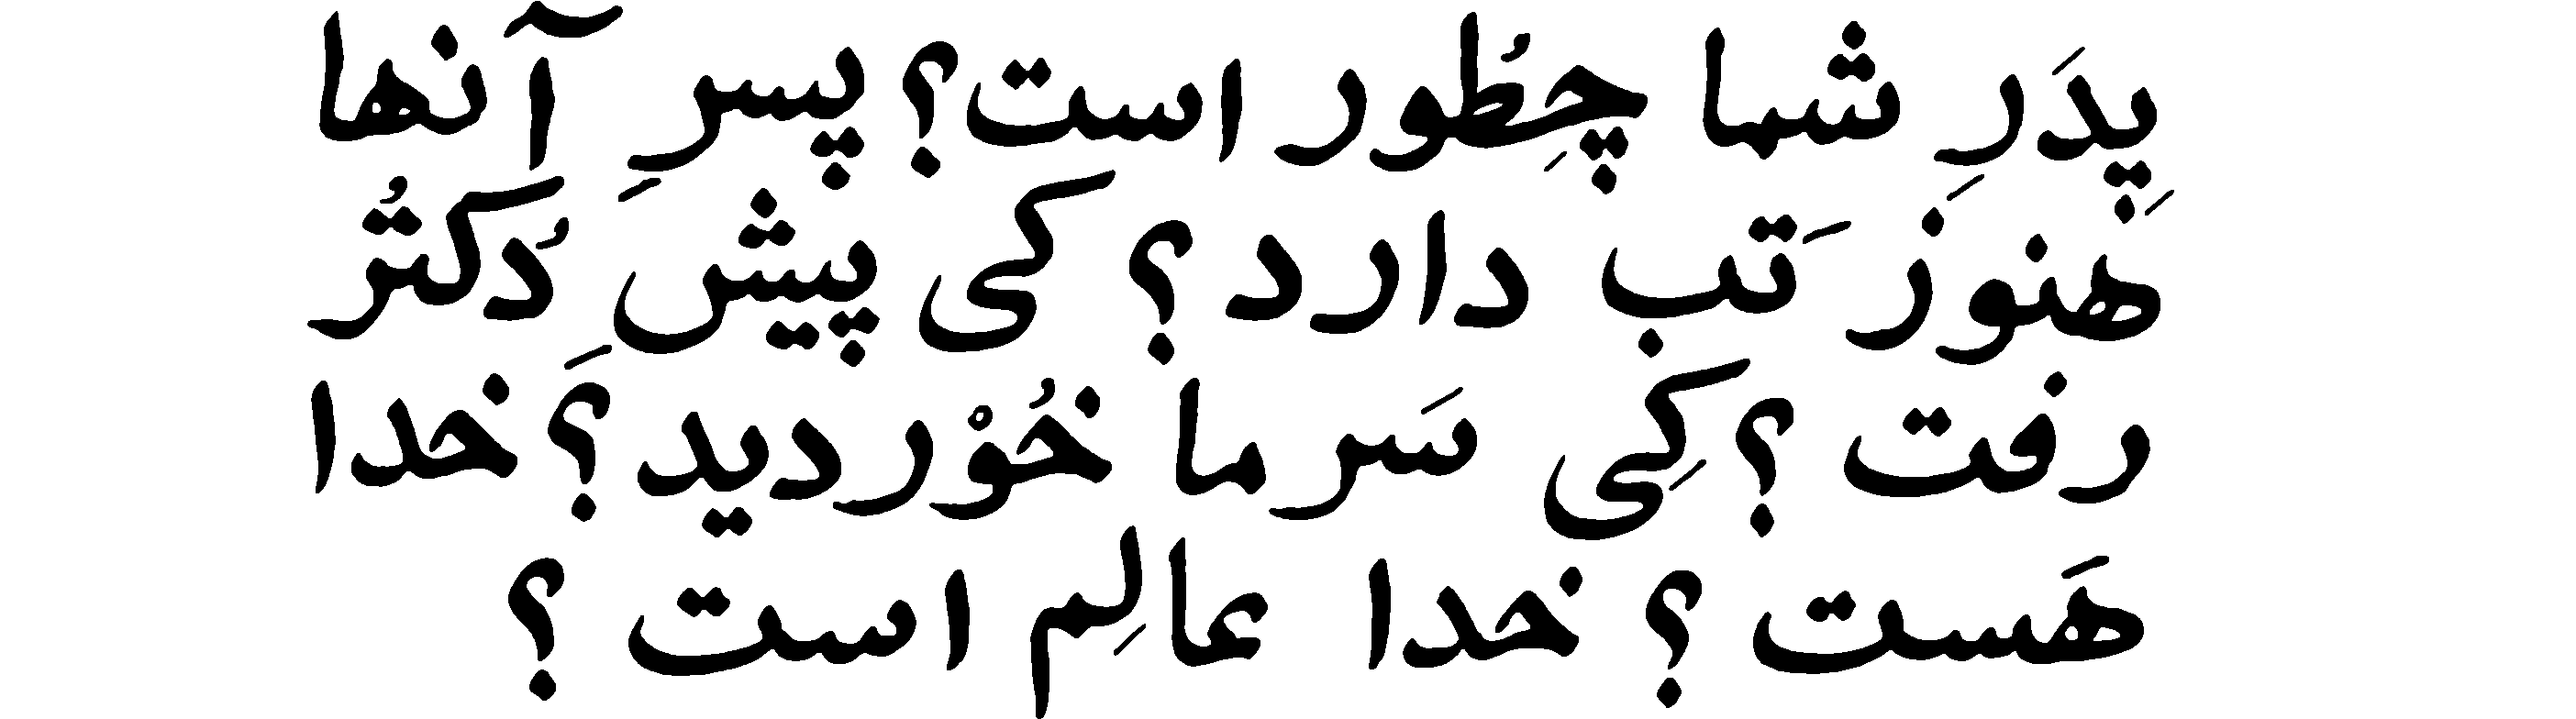 پِدَرِ شما چِطُور است؟ پسرِ آنها
هنوز تَب دارد؟ کی پیشِ دُکتُر
رفت؟ کِی سَرما خُوْردید؟ خدا
هَست؟ خدا عالِم است؟